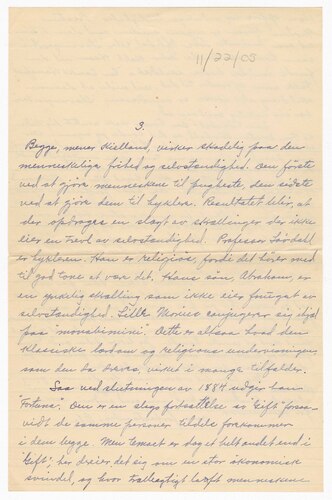 11/22/03
3.
Begge, mener Kielland, virker skadelig paa den
menneskelige frihed og selvstændighed. Den förste
ved at gjöre menneskene til pugheste, den sidste
ved at gjöre dem til hyklere. Resultatet blir, at
der opdrages en slægt av skrællinger der ikke
eier en trevl av selvstændighed. Professor Lövdahl
er hykleren. Han er religiös, fordi det hörer med
til god tone at være det. Hans sön, Abraham, er
en ynkelig skrælling som ikke eier fnugget av
selvstændighed. Lille Marius
paa "mensa rotunda". Dette er altsaa hvad den
klassiske lærdom og religiöse undervisningen,
som den da dreves, virket i mange tilfælder.
Saa ved slutningen av 1884 udgir han
"Fortuna". Den er en slags fortsættelse av "Gift" forsaa-
vidt de samme personer tildels forekommer
i dem begge. Men temaet er dog et helt andet end i
"Gift", her dreier det sig om en stor ökonomisk
svindel, og hvor letbegæltigt menneskene